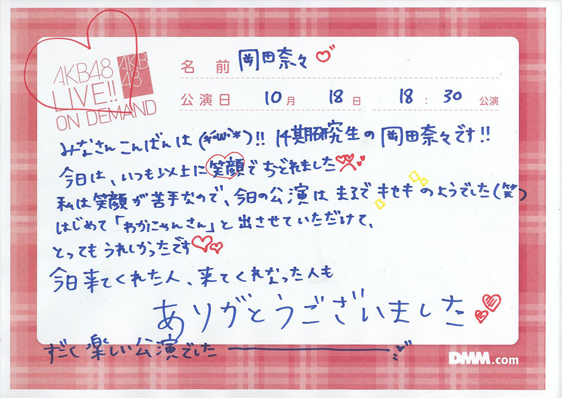 AKB48
LIVE!!
ON DEMAND
AKB
48
名前 岡田奈々
公演日 10月 18日 18:30公演
みなさんこんばんは(*'ω'*)!! 14期研究生の岡田奈々です!!
今日は、いつも以上に笑顔でおどれました
私は笑顔が苦手なので、今日の公演はまるでキセキのようでした(笑)
はじめて「わかにゃんさん」と出させていただけて、
とってもうれしかったです
今日来てくれた人、来てくれなかった人も
ありがとうございました
すごく楽しい公演でした
DMM.com